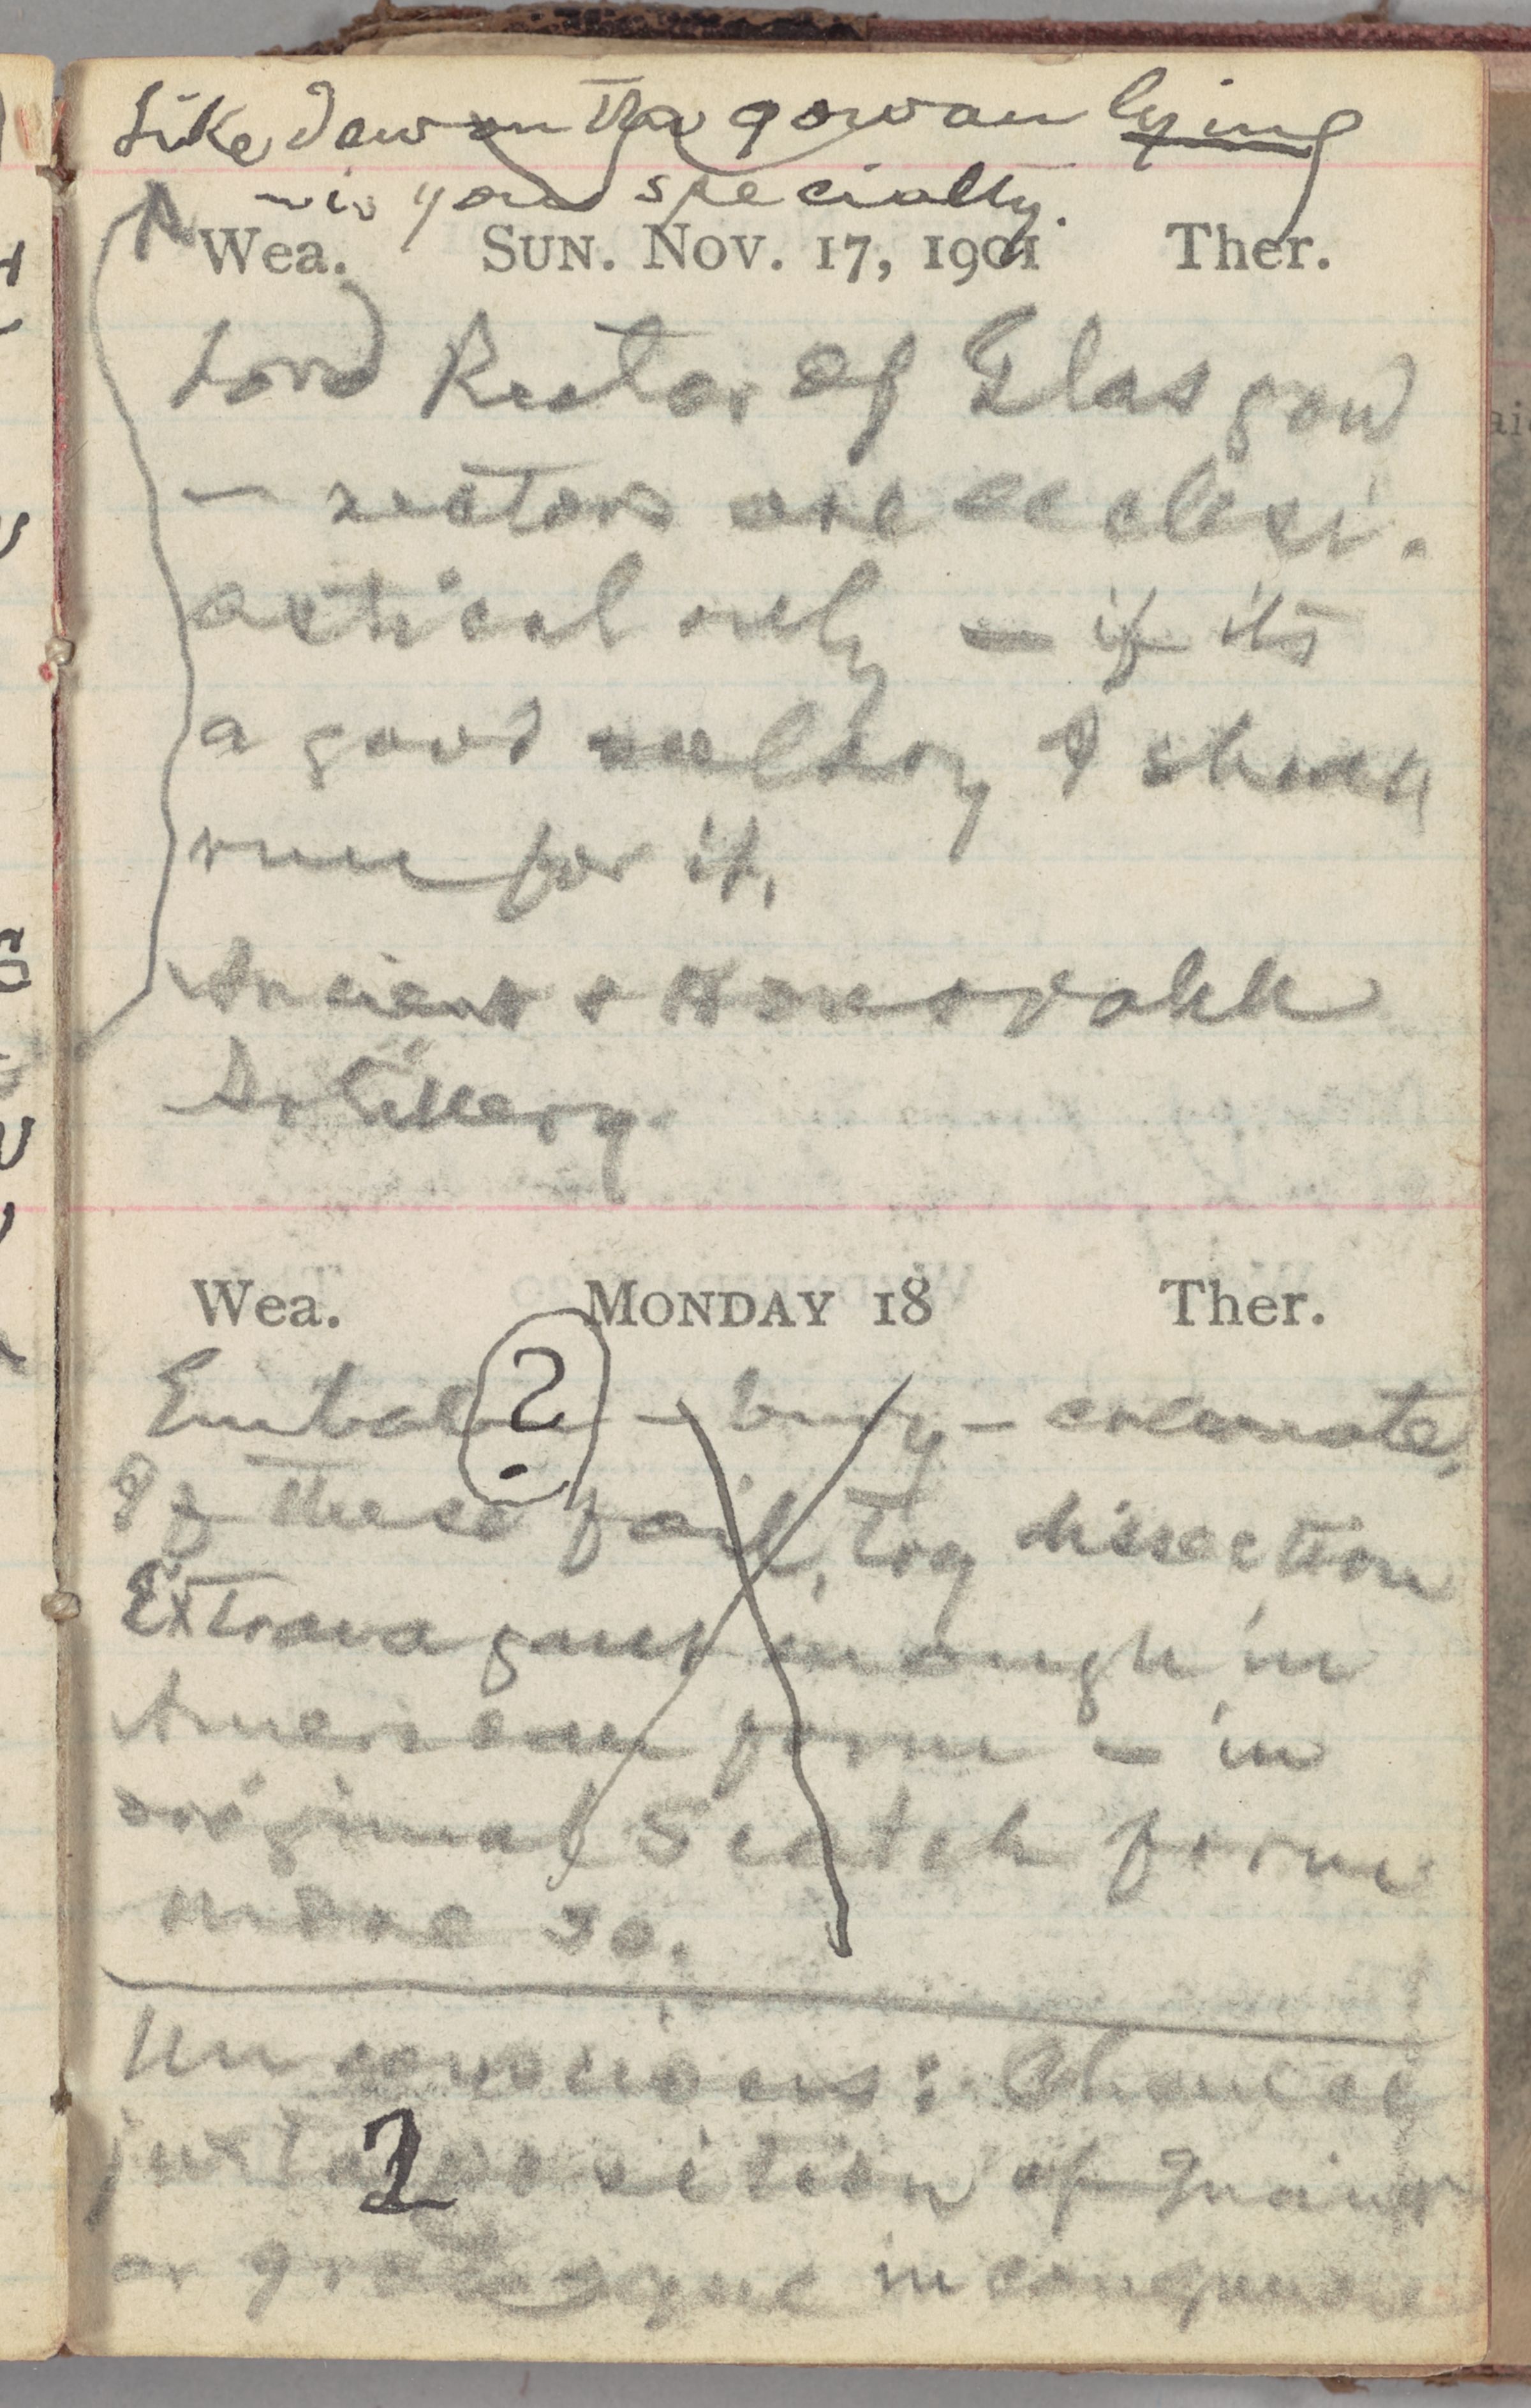 Like dew on the gowan lying
— is your specialty.
Wea. SUN. NOV. 17, 1901 Ther.
Lord Rector of Glasgow
— rectors are ecclesi-
astical only — if its
a good salary I shall
run for it.
Ancient & Honorable
Artillery.
Wea. MONDAY 18 Ther.
?
Embalm — bury — cremate,
If these fail, try dissection
Extravagant enough in
American form — in
original Scotch form
more so.
Unconscious: Chance
juxtaposition of quaint
2
or grotesque incongruous